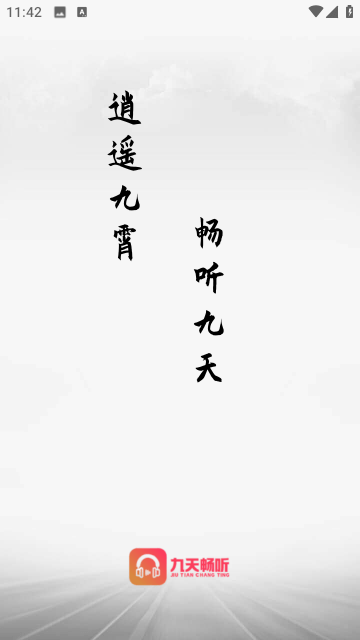 11:42
逍遥九霄
畅听九天
九天畅听
JIU TIAN CHANG TING